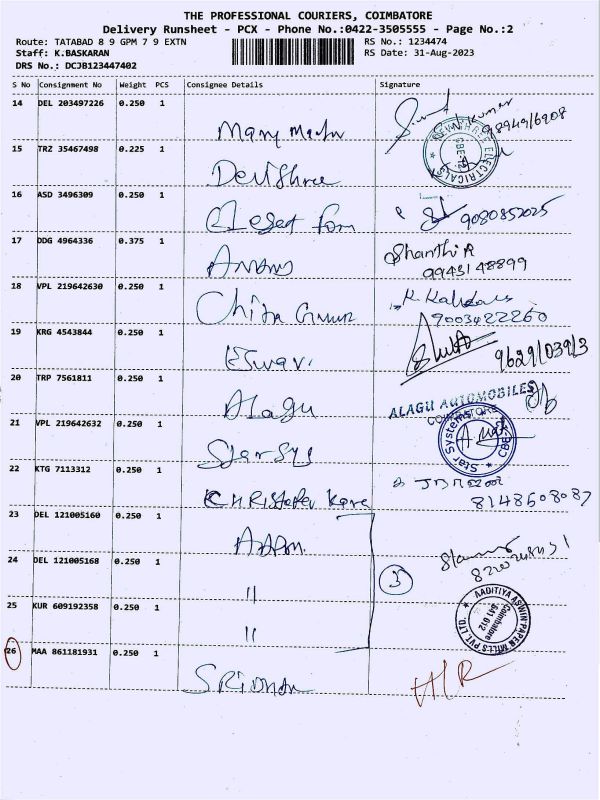 THE PROFESSIONAL COURIERS, COIMBATORE
Delivery Runsheet - PCX - Phone No.:0422-3505555 - Page No.:2
Route: TATABAD 8 9 GPM 7 9 EXTN RS No.: 1234474
Staff: K.BASKARAN RS Date: 31-Aug-2023
DRS No.: DCJB123447402
S No Consignment No Weight PCS Consignee Details Signature
14 DEL 203497226 0.250 1
15 TRZ 35467498 0.225 1 Devishree
16 ASD 3496309 0.250 1 9080852025
17 DDG 4964336 0.375 1 Shanthi R
9943148899
18 VPL 219642630 0.250 1 Chitra
9003422260
19 KRG 4543844 0.250 1 Eswari
20 TRP 7561811 0.250 1 Alagu ALAGU AUTOMOBILES
COIMBATORE
21 VPL 219642632 0.250 1 Star Sys Star Systems
22 KTG 7113312 0.250 1
8148608087
23 DEL 121005160 0.250 1
24 DEL 121005168 0.250 1 "
25 KUR 609192358 0.250 1 " AADITIYA ASWIN PAPER MILLS PVT. LTD.
Coimbatore
641 012
26 MAA 861181931 0.250 1 SRIDHAR